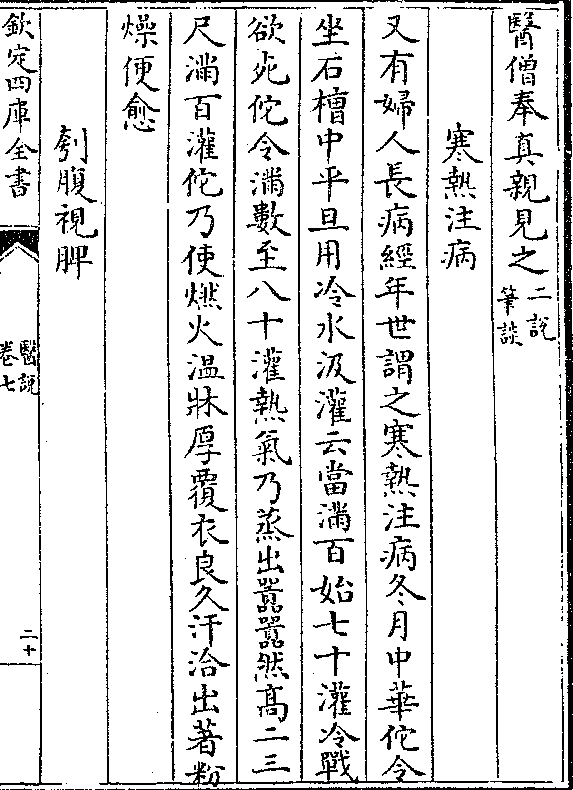 醫僧奉真親見之二說
筆談
寒熱注病
又有婦人長病經年世謂之寒熱注病冬月中華佗令
坐石槽中平旦用冷水汲灌云當滿百始七十灌冷戰
欲死佗令滿數至八十灌熱氣乃蒸出囂囂然高二三
尺滿百灌佗乃使燃火温牀厚覆衣良久汗洽出著粉
燥便愈
刳腹視脾
欽定四庫全書
醫說
卷七
二十